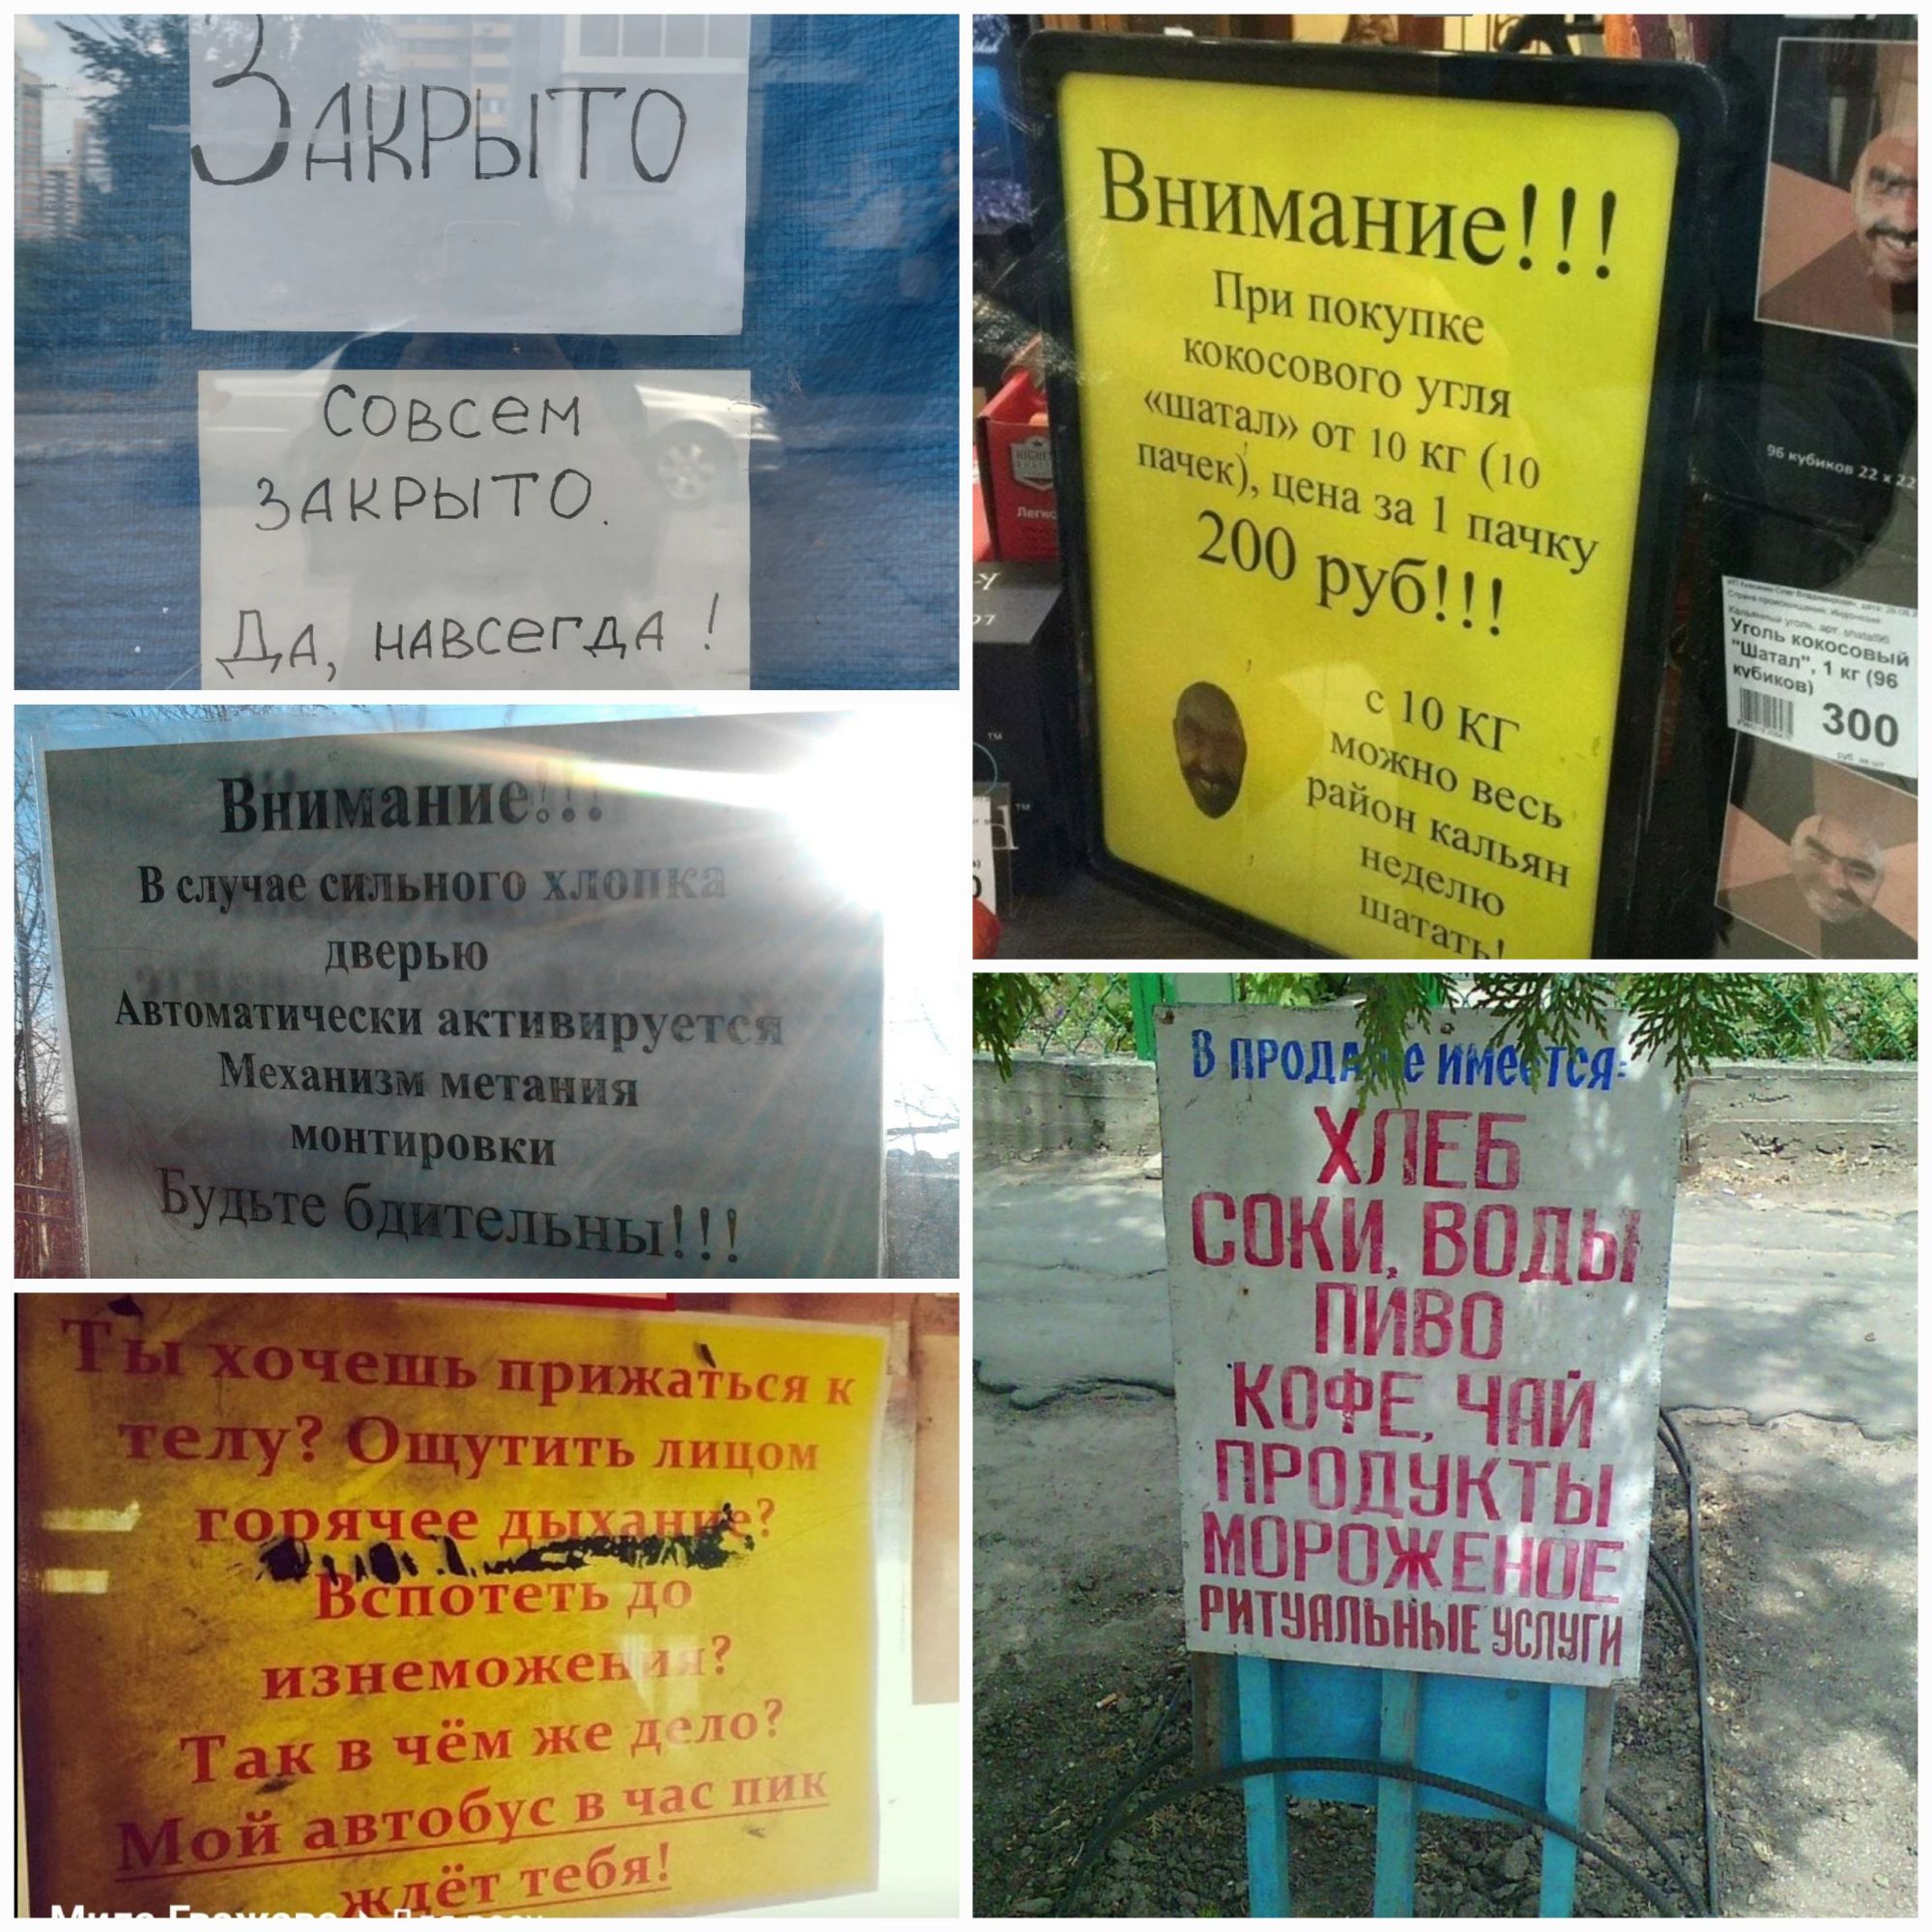 ЗАКРЫТО
СОВСЕМ
ЗАКРЫТО.
ДА, НАВСЕГДА!
Внимание!!!
При покупке
кокосового угля
«шатал» от 10 кг (10
пачек), цена за 1 пачку
200 руб!!!
с 10 КГ
можно весь
район кальян
неделю
шатать!
96 кубиков 22 х 22
Уголь кокосовый
"Шатал", 1 кг (96
кубиков)
300
Внимание!!!
В случае сильного хлопка
дверью
Автоматически активируется
Механизм метания
монтировки
Будьте бдительны!!!
В ПРОДАЖЕ ИМЕЕТСЯ:
ХЛЕБ
СОКИ, ВОДЫ
ПИВО
КОФЕ, ЧАЙ
ПРОДУКТЫ
МОРОЖЕНОЕ
РИТУАЛЬНЫЕ УСЛУГИ
Ты хочешь прижаться к
телу? Ощутить лицом
горячее дыхание?
Вспотеть до
изнеможения?
Так в чём же дело?
Мой автобус в час пик
ждёт тебя!